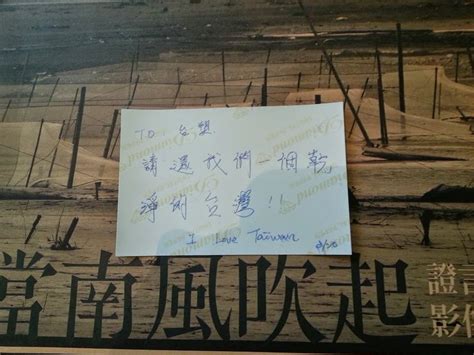 TO 台塑
請還我們一個乾
淨的台灣!!
I Love Taiwan
當南風吹起
證言
影像